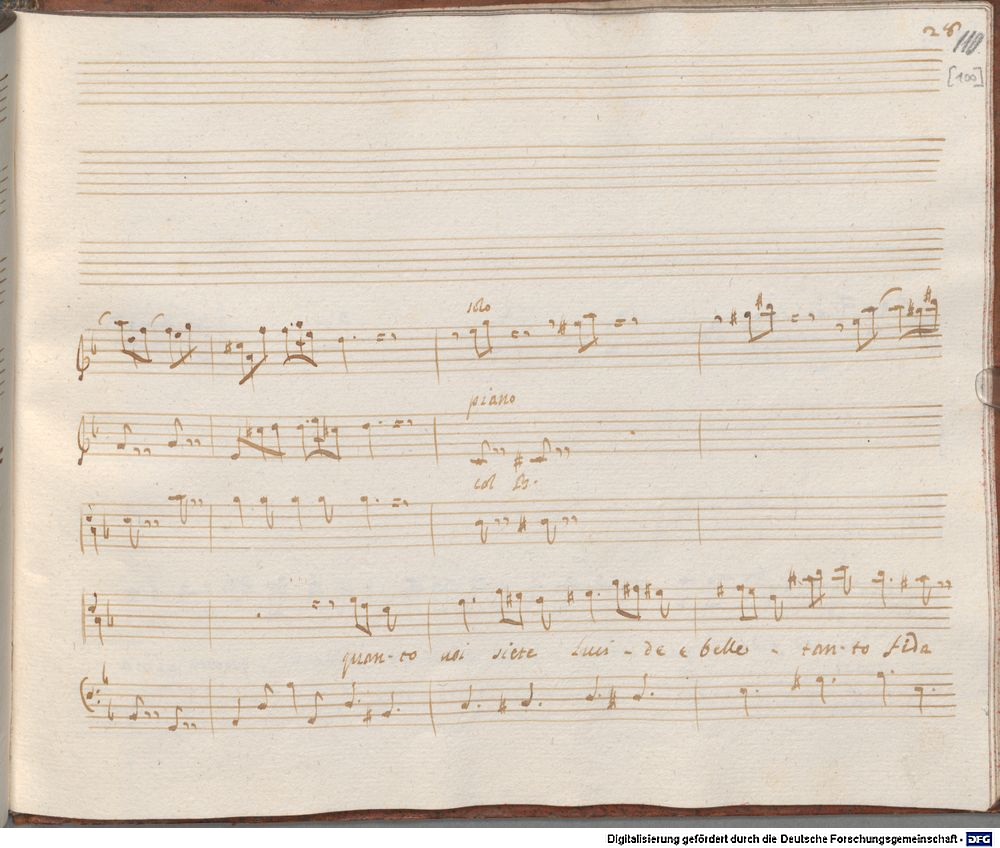 28
110
[100]
solo
piano
col B.
quan-to voi siete luci-de e belle - tan-to fida
Digitalisierung gefördert durch die Deutsche Forschungsgemeinschaft - DFG